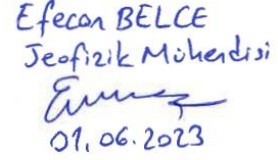 Efecan BELCE
Jeofizik Mühendisi
01.06.2023